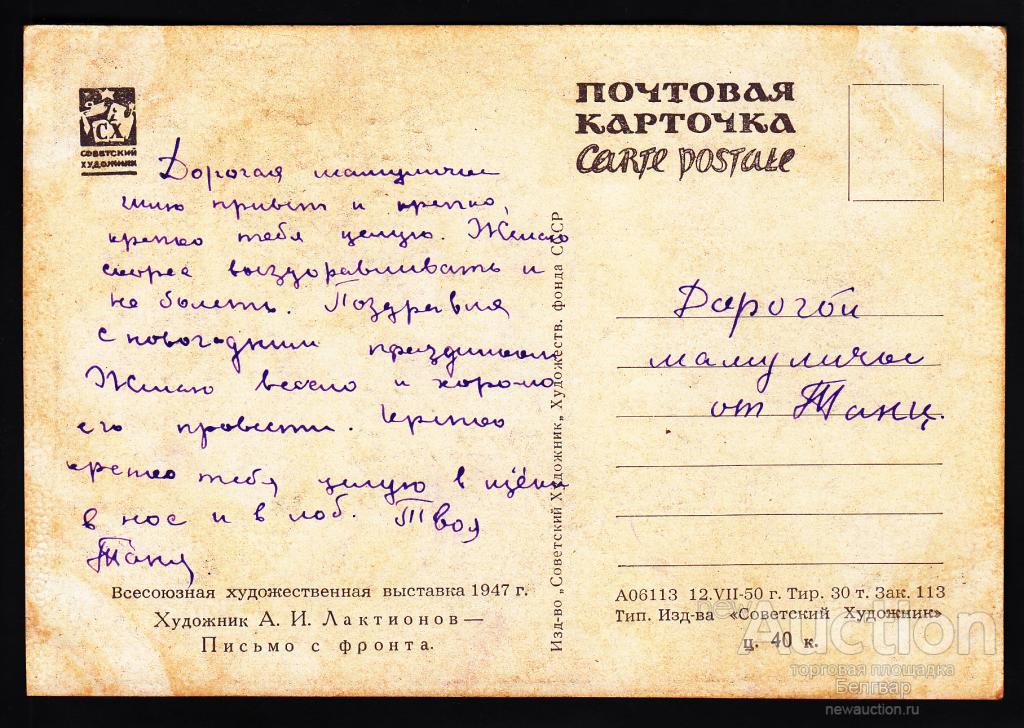 СХ
СОВЕТСКИЙ
ХУДОЖНИК
Дорогая мамуличка
шлю привет и крепко,
крепко тебя целую. Желаю
скорее выздоравливать и
не болеть. Поздравляю
с новогодним праздником
Желаю весело и хорошо
его провести. Крепко
крепко тебя целую в щёки
в нос и в лоб. Твоя
Таня.
Всесоюзная художественная выставка 1947 г.
Художник А. И. Лактионов—
Письмо с фронта.
Изд-во „Советский Художник„ Художеств. фонда СССР
ПОЧТОВАЯ
КАРТОЧКА
CARTE POSTALE
Дорогой
мамуличке
от Тани.
А06113 12.VII-50 г. Тир. 30 т. Зак. 113
Тип. Изд-ва «Советский Художник»
ц. 40 к.
newAuction
торговая площадка
Белгвар
newauction.ru